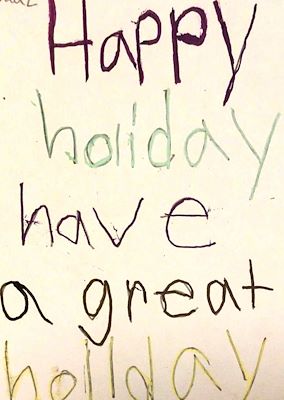 Happy
holiday
have
a great
holiday